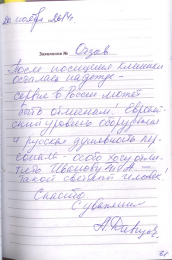 20 ноября 2014г.
Заявление № Отзыв
После посещения клиники
осталась надежда -
сервис в России может
быть отменным! Европей-
ский уровень оборудования
и русская душевность пер-
сонала - особо хочу отме-
тить Иванову -
такой светлый человек!
Спасибо
С уважением
А. Давыдов